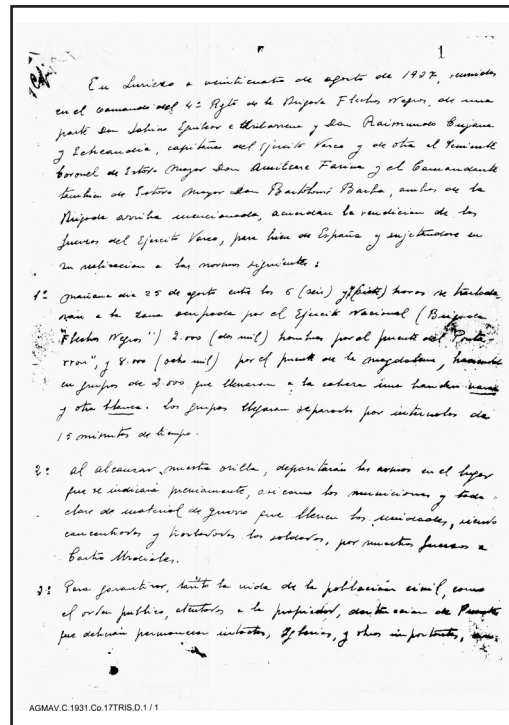 1
En Guriezo a veinticuatro de agosto de 1937, reunidos
en el comando del 4º Rgto de la Brigada Flechas Negras, de una
parte Don Sabino Eguileor e Uribarrena y Don Raimundo
y Echeandia, capitanes del Ejercito Vasco y de otra el Teniente
Coronel de Estado Mayor Don Amilcare Farina y el Comandante
tambien de Estado Mayor Don Bartolomé Barba, ambos de la
Brigada arriba mencionada, acuerdan la rendicion de las
fuerzas del Ejercito Vasco, para bien de España y sujetandose en
su realizacion a las normas siguientes:
1º mañana dia 25 de agosto entre las 6 (seis) y 7 (siete) horas se traslada-
ran a la zona ocupada por el Ejercito Nacional (Brigada
"Flechas Negras") 2.000 (dos mil) hombres por el puente del
y 8.000 (ocho mil) por el puente de la Magdalena,
en grupos de 2.000 que llevaran a la cabeza una bandera
y otra blanca. Los grupos llegaran separados por intervalos de
15 minutos de tiempo.
2º al alcanzar nuestra orilla, depositarán las armas en el lugar
que se indicará previamente, asi como las municiones y toda
clase de material de guerra que lleven las unidades, siendo
y trasladados los soldados, por nuestras fuerzas a
Castro Urdiales.
3º Para garantizar, tanto la vida de la población civil, como
el orden publico, atentados a la propiedad, destruccion de Puentes
que deberán permanecer intactos, Iglesias, y otros importantes,
AGMAV.C.1931.Co.17TRIS.D.1 / 1